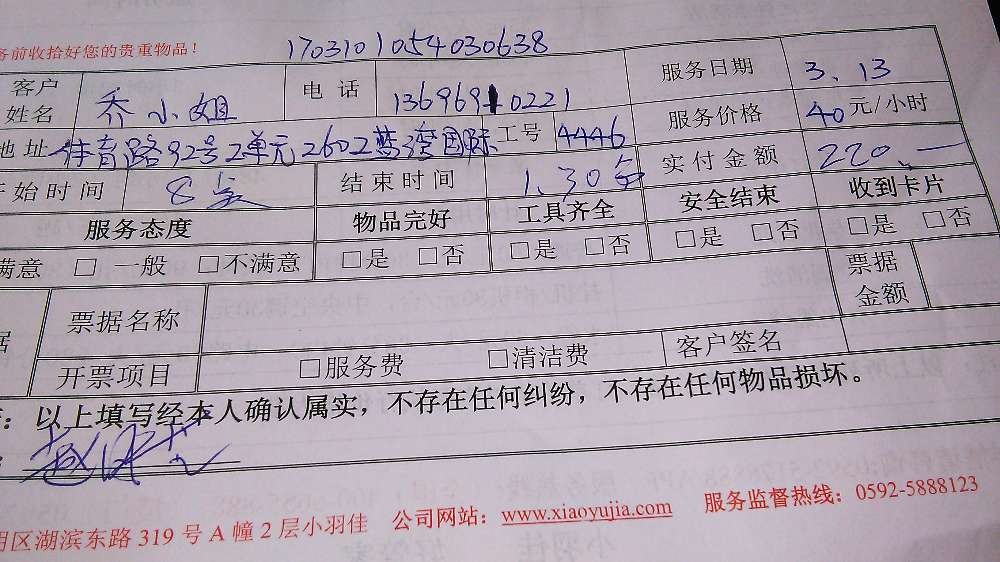 务前收拾好您的贵重物品！ 1703101054030638
客户姓名 乔小姐 电话 13696910221 服务日期 3.13
地址 体育路92号2单元2602蓝湾国际 工号 4446 服务价格 40元/小时
开始时间 8点 结束时间 1.30分 实付金额 220.一
服务态度 物品完好 工具齐全 安全结束 收到卡片
满意 □ 一般 □不满意 □是 □否 □是 □否 □是 □否 □是 □否
据 票据名称 票据金额
开票项目 □服务费 □清洁费 客户签名
：以上填写经本人确认属实，不存在任何纠纷，不存在任何物品损坏。
明区湖滨东路319号A幢2层小羽佳 公司网站：www.xiaoyujia.com 服务监督热线：0592-5888123